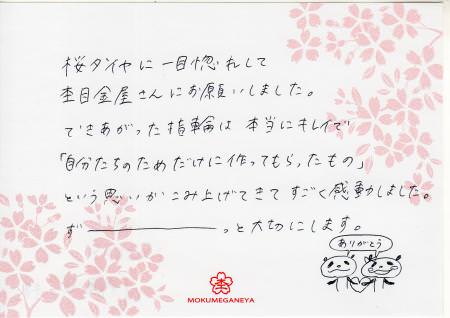 桜ダイヤに一目惚れして
杢目金屋さんにお願いしました。
できあがった指輪は本当にキレイで
「自分たちのためだけに作ってもらったもの」
という思いがこみ上げてきてすごく感動しました。
ず―――――っと大切にします。
ありがとう
杢
MOKUMEGANEYA